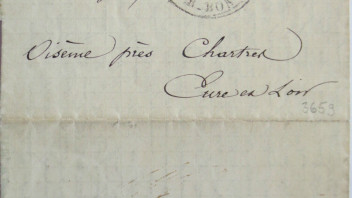 R. BOM
Oisème près Chartres
Eure et Loir
3659